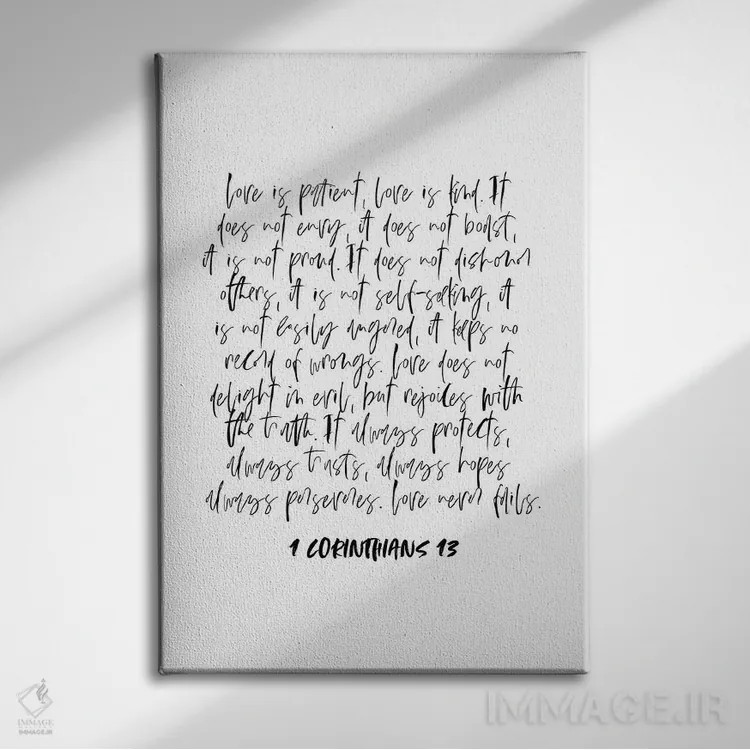 Love is patient, love is kind. It
does not envy, it does not boast,
it is not proud. It does not dishonor
others, it is not self-seeking, it
is not easily angered, it keeps no
record of wrongs. Love does not
delight in evil, but rejoices with
the truth. It always protects,
always trusts, always hopes
always perseveres. Love never fails.
1 CORINTHIANS 13
IMMAGE
IMMAGE.IR
IMMAGE.IR